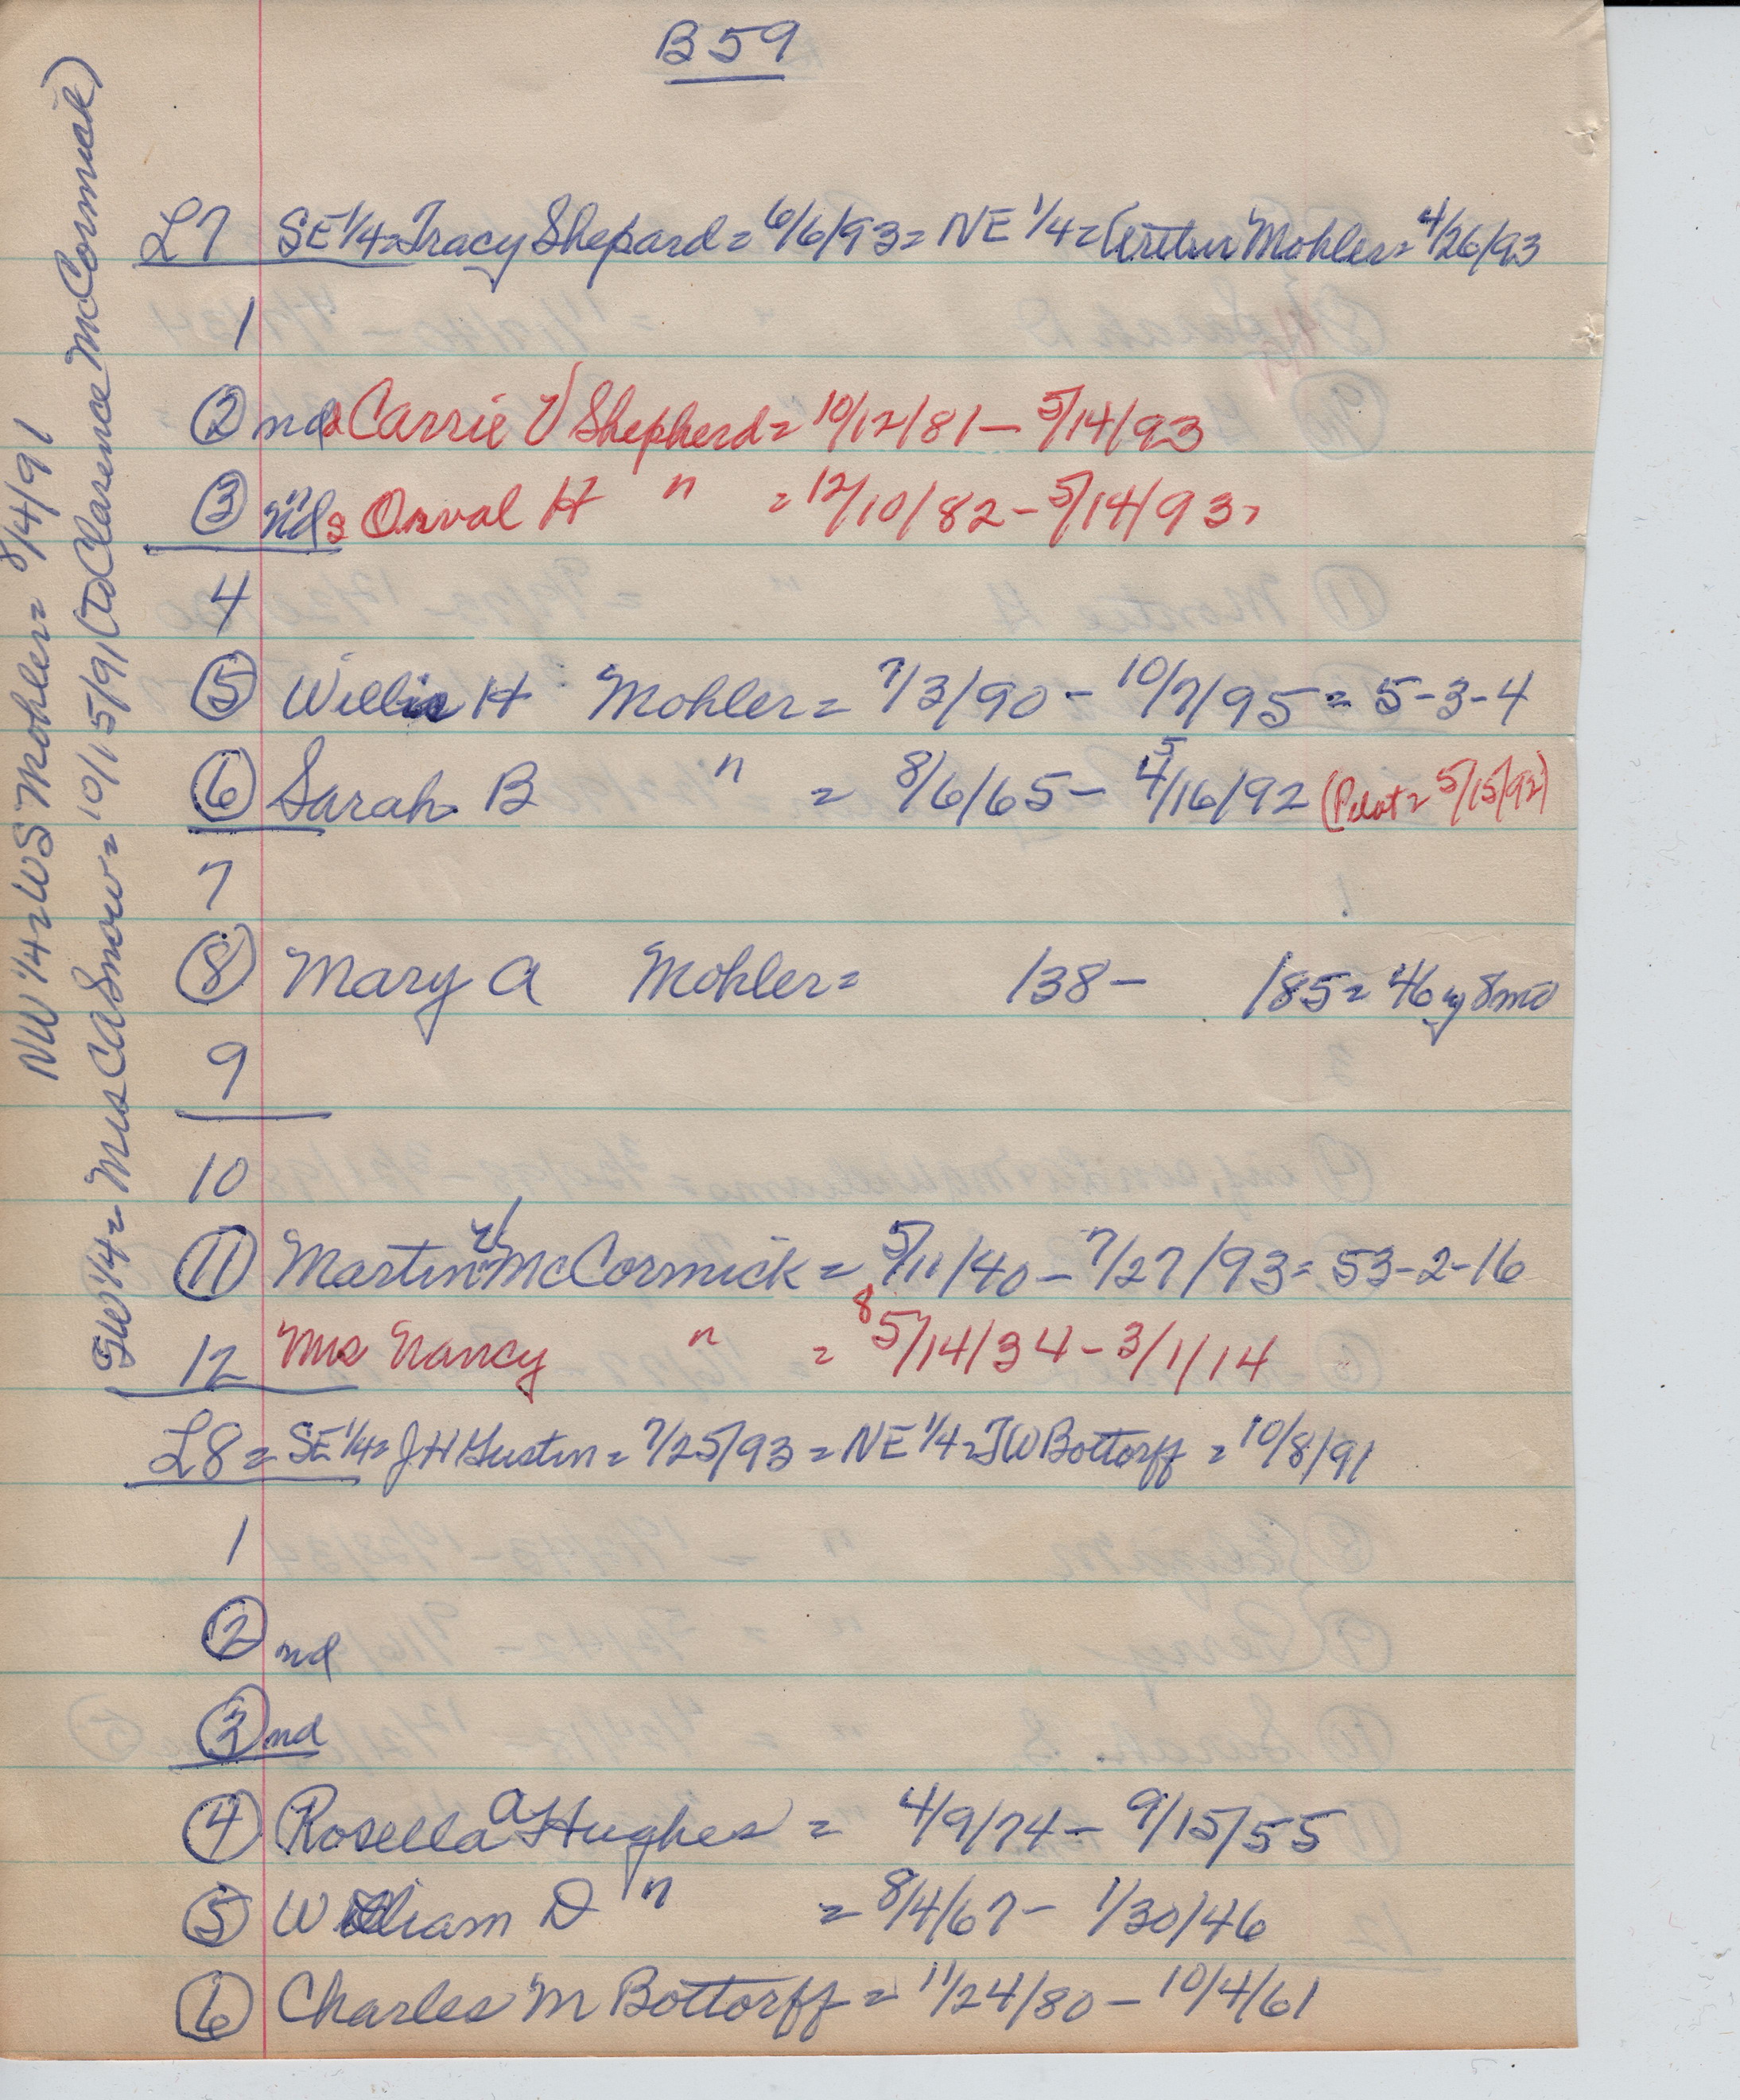 B 59
L7 SE 1/4 = Tracy Shepard = 6/6/93 = NE 1/4 = Arthur Mohler = 4/26/93
1
2 nd = Carrie V Shepherd = 10/12/81 - 5/14/93
3 nd = Orval H " = 12/10/82 - 5/14/93
4
5 Willis H Mohler = 7/3/90 - 10/7/95 = 5-3-4
6 Sarah B " = 8/6/65 - 4/16/92 (Pelat = 5/15/92)
5
7
8 Mary A Mohler = 138 - 185 = 46 y 8 mo
9
10
11 Martin V McCormick = 5/11/40 - 7/27/93 = 53-2-16
12 Mrs Nancy " = 5/14/34 - 3/1/14
8
L8 = SE 1/4 = J H Gustin = 7/25/93 = NE 1/4 = J W Bottorff = 10/8/91
1
2 nd
3 nd
4 Rosella A Hughes = 4/9/74 - 9/15/55
5 William D " = 8/4/67 - 1/30/46
6 Charles M Bottorff = 11/24/80 - 10/4/61
NW 1/4 = W S Mohler = 8/4/91
SW 1/4 = Mrs C A Snow = 10/15/91 (To Clarence McCormick)